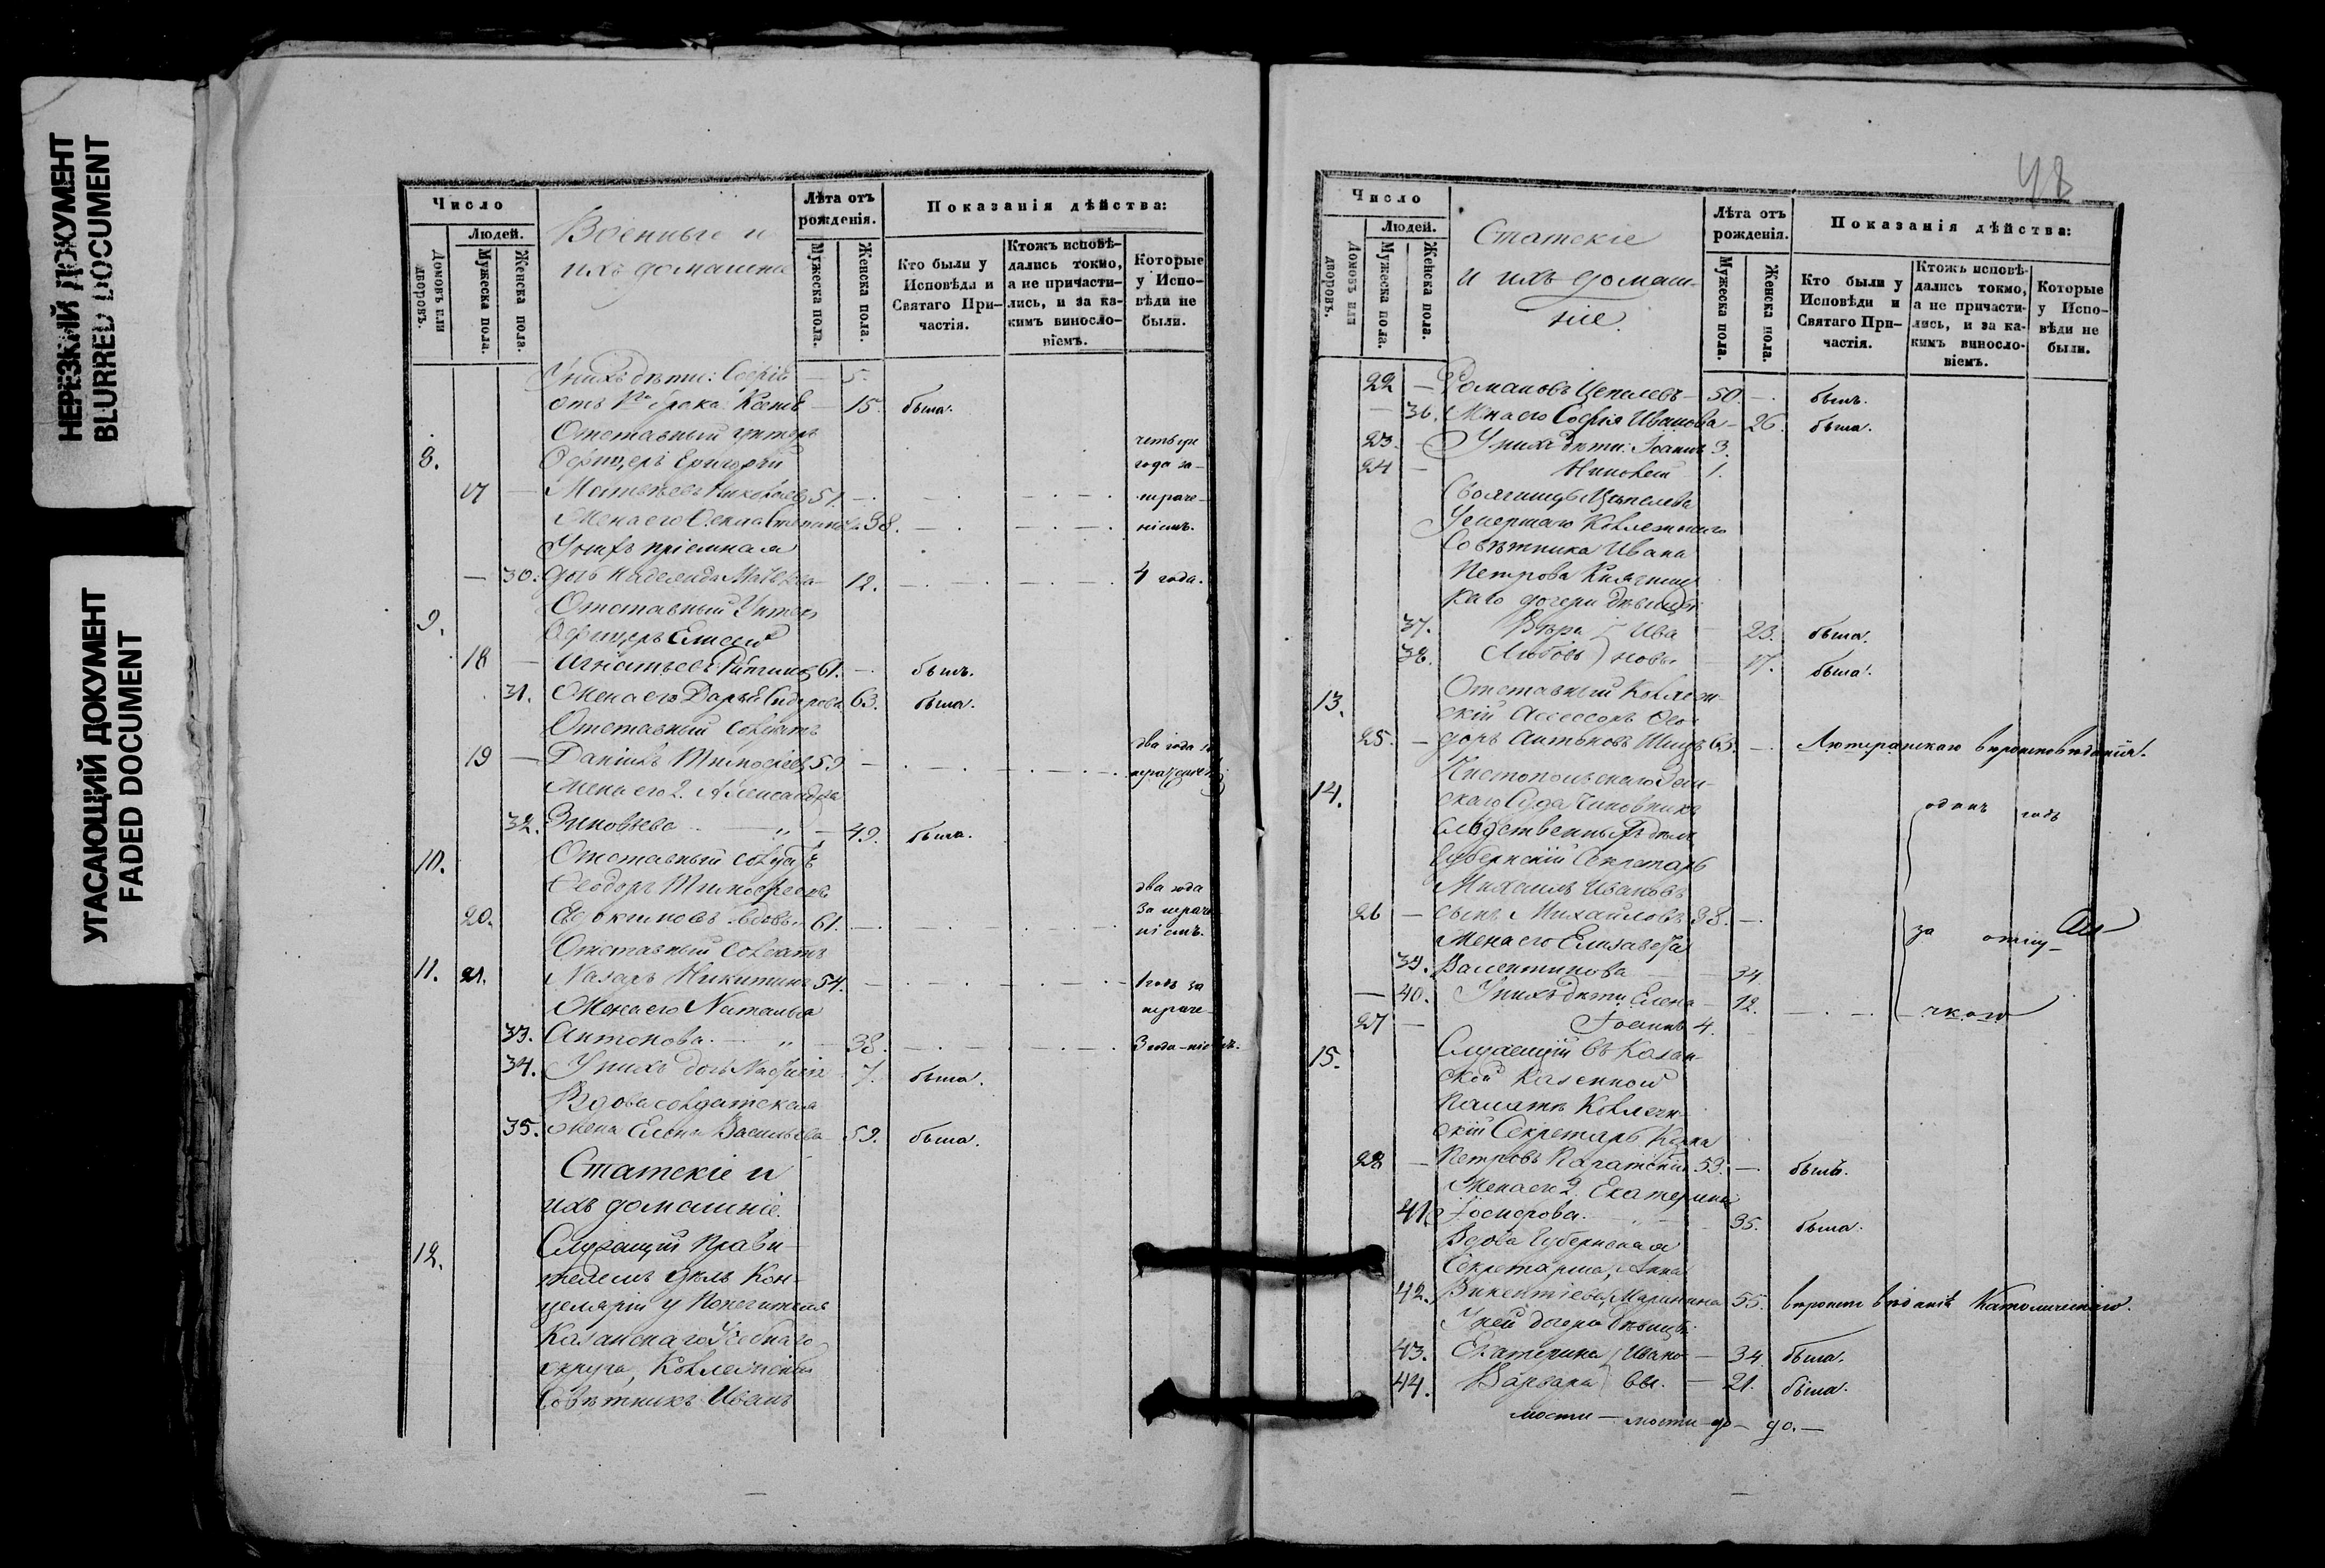 НЕРЕЗКИЙ ДОКУМЕНТ
BLURRED DOCUMENT
УГАСАЮЩИЙ ДОКУМЕНТ
FADED DOCUMENT
Число
Людей.
Домовъ или дворовъ.
Мужеска пола.
Женска пола.
Военные и
ихъ домашніе
Лѣта отъ рожденія.
Мужеска пола.
Женска пола.
Показанія дѣйства:
Кто были у Исповѣди и Святаго Причастія.
Ктожъ исповѣдались токмо, а не причастились, и за какимъ винословіемъ.
Которые у Исповѣди не были.
У нихъ дѣти: Софія — 5.
отъ 1го брака Ксенія — 15. была.
Отставный унтеръ четыре
8. Офицеръ Григорій года за
17 — Матвѣевъ Николаевъ 51. — нераче-
Жена его Ѳекла Степанова 38. ніемъ.
У нихъ пріемная
— 30. дочь Надежда 12. 4 года.
Отставный Унтеръ
9. Офицеръ Елисей
18 — Игнатьевъ 61. — былъ.
31. Жена его Дарья Сидорова 63. была.
Отставный солдатъ
19 — Даніилъ Тимоѳеевъ 59 — два года
Жена его 2. Александра
32. Зиновьева — „ — 49. была.
10. Отставный солдатъ
Ѳеодоръ Тимофеевъ два года
20. Евдокимовъ вдовъ 61. — за нераче-
ніемъ.
Отставный Солдатъ
11. 21. Назаръ Никитинъ 54. — 1 годъ за
Жена его Наталья нераче-
33. Антонова — „ — 38. 3 года —ніемъ.
34. У нихъ дочь 7. была.
Вдова солдатская
35. жена Елена Васильева 59. была.
Статскіе и
ихъ домашніе.
12. Служащій Прави-
телемъ дѣлъ Кан-
целяріи у Попечителя
Казанскаго Учебнаго
округа, Коллежскій
Совѣтникъ Иванъ
48
Число
Людей.
Домовъ или дворовъ.
Мужеска пола.
Женска пола.
Статскіе
и ихъ домаш-
ніе.
Лѣта отъ рожденія.
Мужеска пола.
Женска пола.
Показанія дѣйства:
Кто были у Исповѣди и Святаго Причастія.
Ктожъ исповѣдались токмо, а не причастились, и за какимъ винословіемъ.
Которые у Исповѣди не были.
22 — Романовъ Цепелевъ — 50. — былъ.
— 36. Жена его Софія Иванова — 26. была.
23. — У нихъ дѣти: Іоаннъ 3.
24 — Николай 1.
Своячницы Цепелева
Умершаго Коллежскаго
Совѣтника Ивана
Петрова
каго дочери дѣвицы
37. Вѣра } Ива — 23. была.
38. Любовь } новы — 17. была.
13. Отставный Коллеж-
скій Ассессоръ Ѳео-
25. — доръ Антоновъ 65. — Лютеранскаго вѣроисповѣданія.
Чистопольскаго Зем-
14. скаго Суда Чиновникъ одинъ годъ
слѣдственныхъ дѣлъ
Губернскій Секретарь
Михаилъ Ивановъ
26 — сынъ Михайловъ 38. —
за отлу-
Жена его Елизавета
39. Валентинова — 34.
— 40. У нихъ дѣти Елена — 12.
чкою
27 — Іоаннъ 4.
15. Служащій въ Казан-
ской Казенной
Палатѣ Коллеж-
скій Секретарь
28 — Петровъ 53. — былъ.
Жена его 2. Екатерина
41. Іосифова. — „ — 35. была.
Вдова Губернская
Секретарша, Анна
42. Викентіева 55. вѣроисповѣданія Католическаго.
У ней дочери дѣвицы:
43. Екатерина } Ивано — 34. была.
44. Варвара } вы. — 21. была.